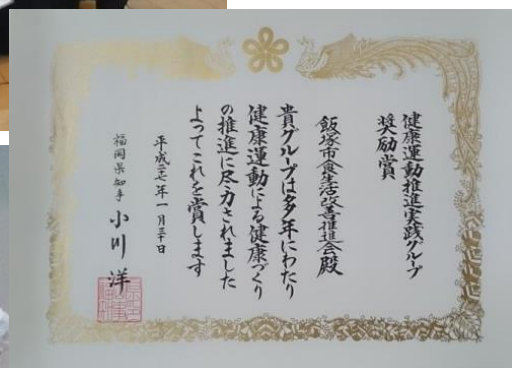 健康運動推進実践グループ
奨励賞
飯塚市食生活改善推進会殿
貴グループは多年にわたり
健康運動による健康づくり
の推進に尽力されました
よってこれを賞します
平成二七年一月三十日
福岡県知事 小川洋